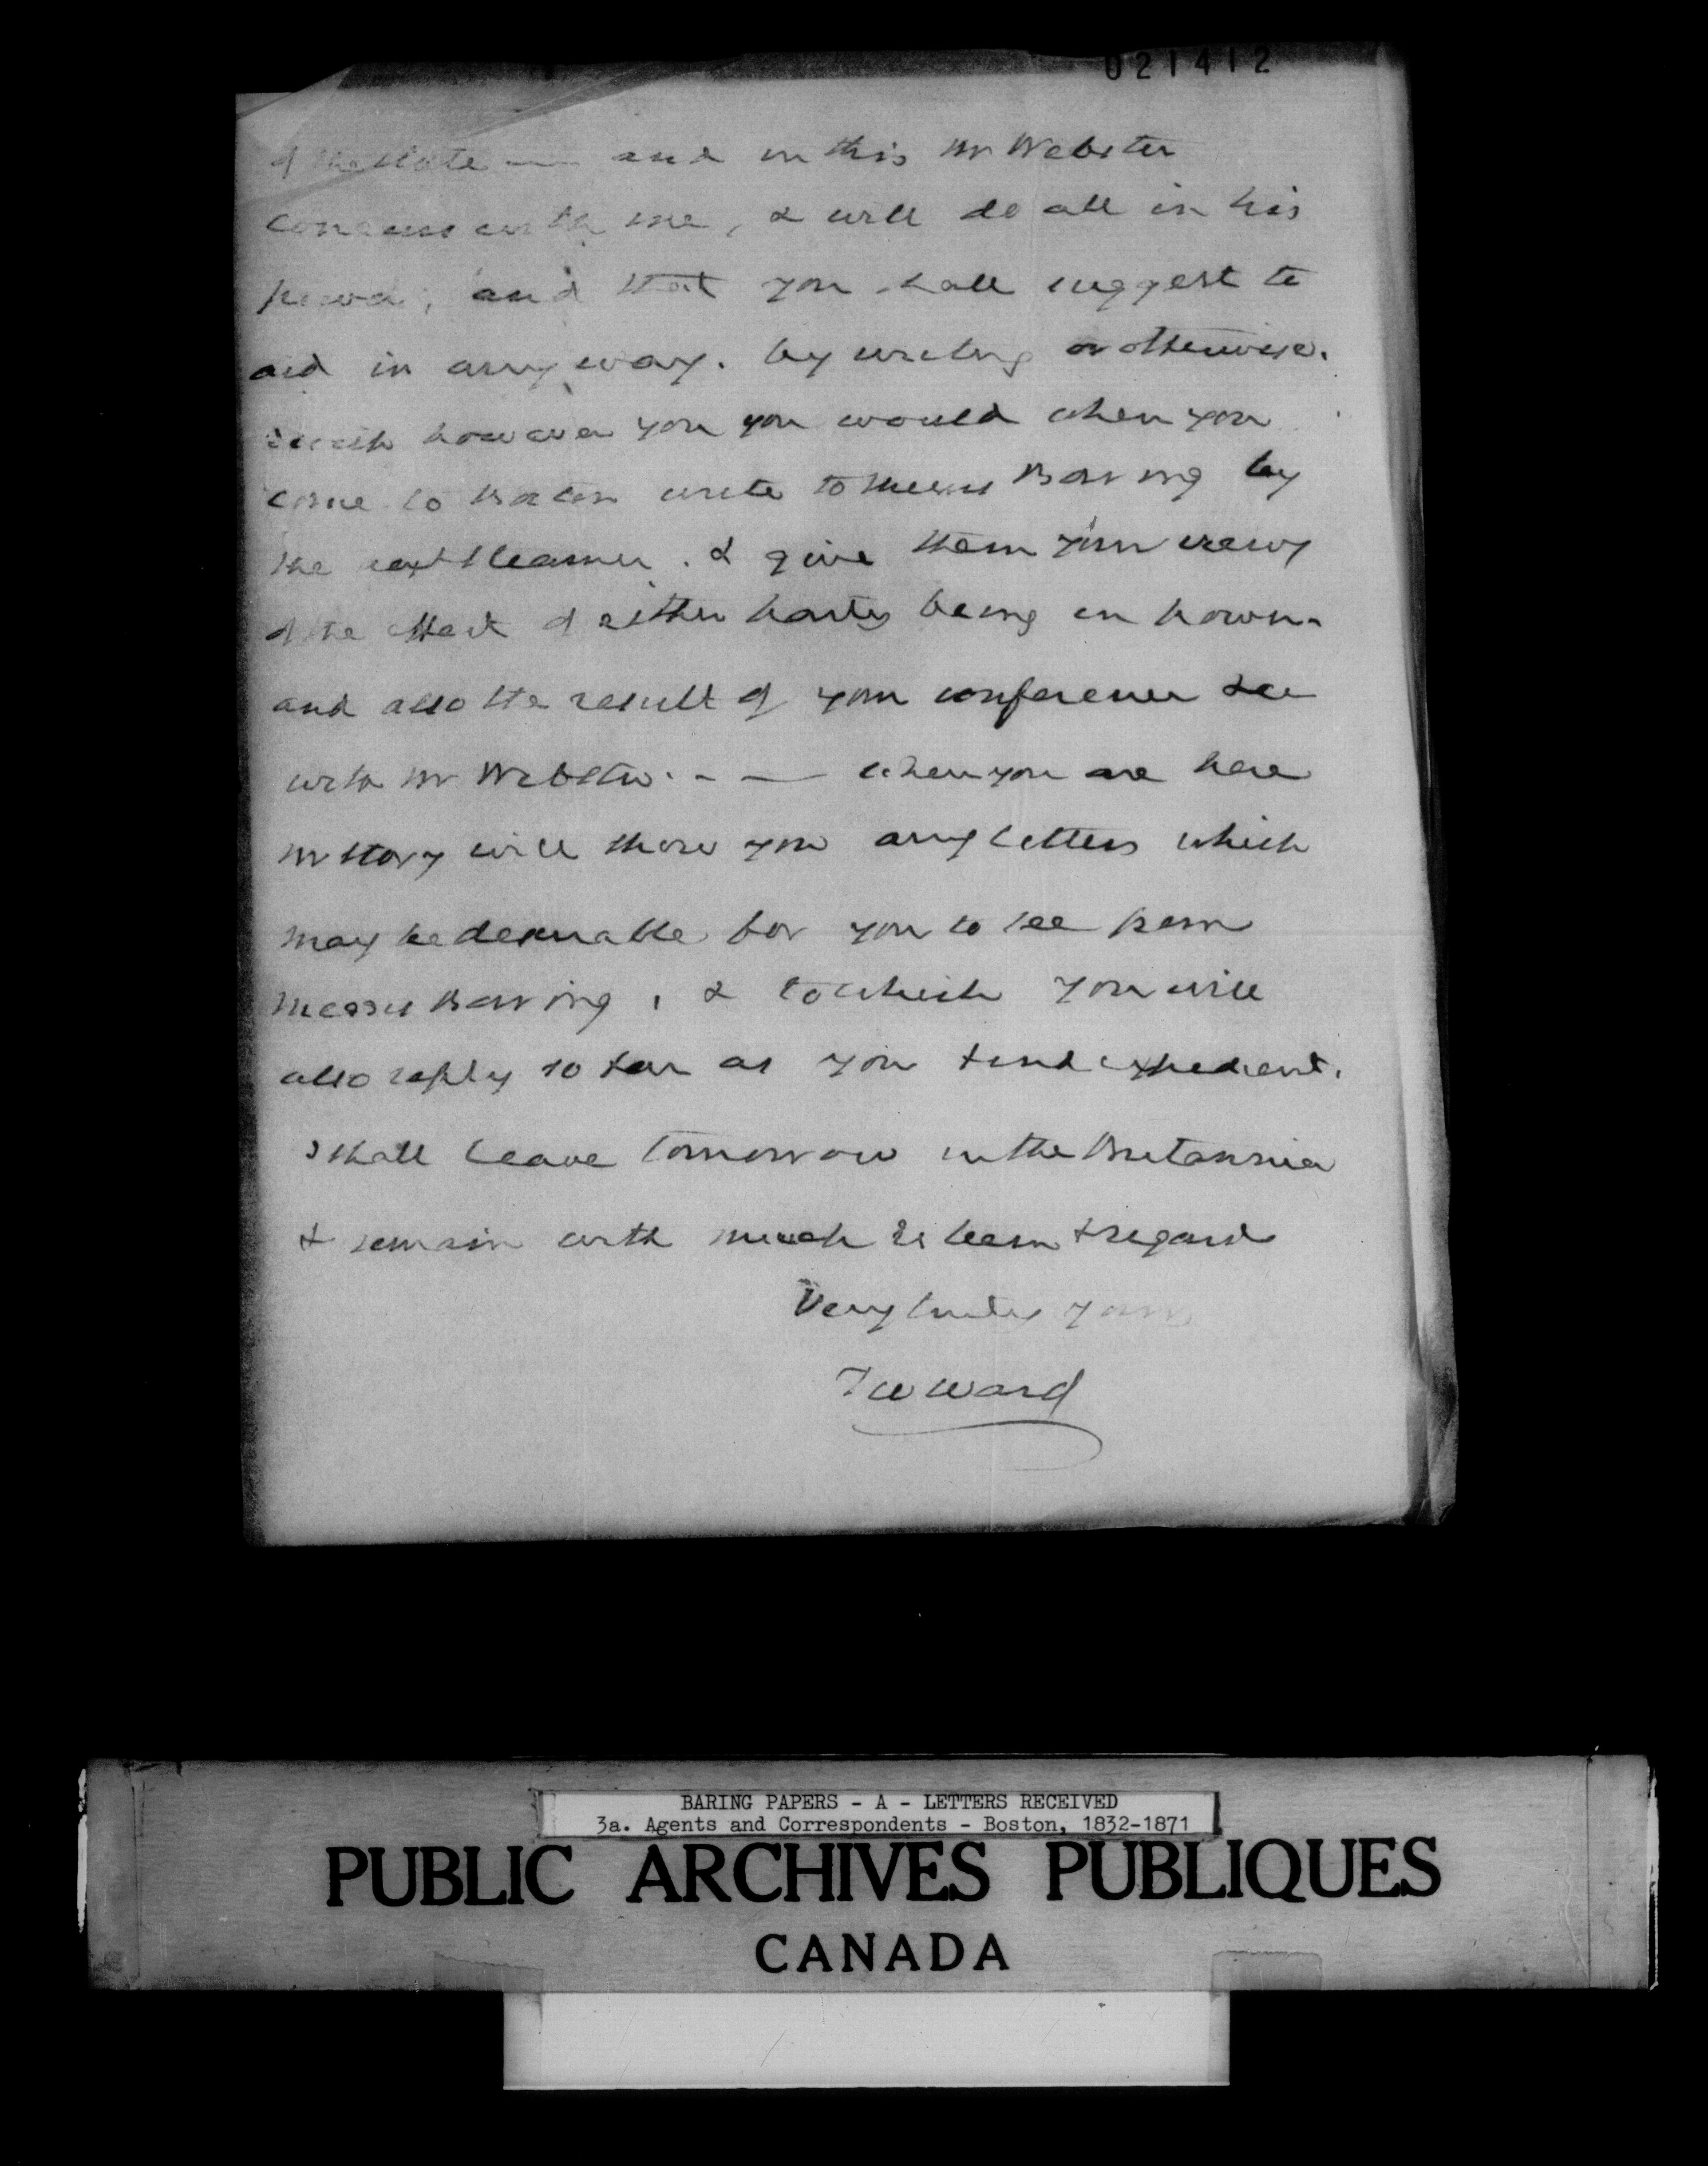 021412
of the State — and in this Mr Webster
concurs with me, & will do all in his
power, and that you shall suggest to
aid in any way. by writing or otherwise.
I wish however you you would when you
come to Boston write to Messrs Baring by
the next steamer. & give them your views
of the effect of either party being in power.
and also the result of your conference &ce
with Mr Webster. - — when you are here
Mr Story will show you any letters which
may be desirable for you to see from
Messrs Baring, & to which you will
also reply so far as you find expedient.
I shall leave tomorrow in the Britannia
& remain with much Esteem & regard
Very truly yours
T W Ward
BARING PAPERS - A - LETTERS RECEIVED
3a. Agents and Correspondents - Boston, 1832-1871
PUBLIC ARCHIVES PUBLIQUES
CANADA